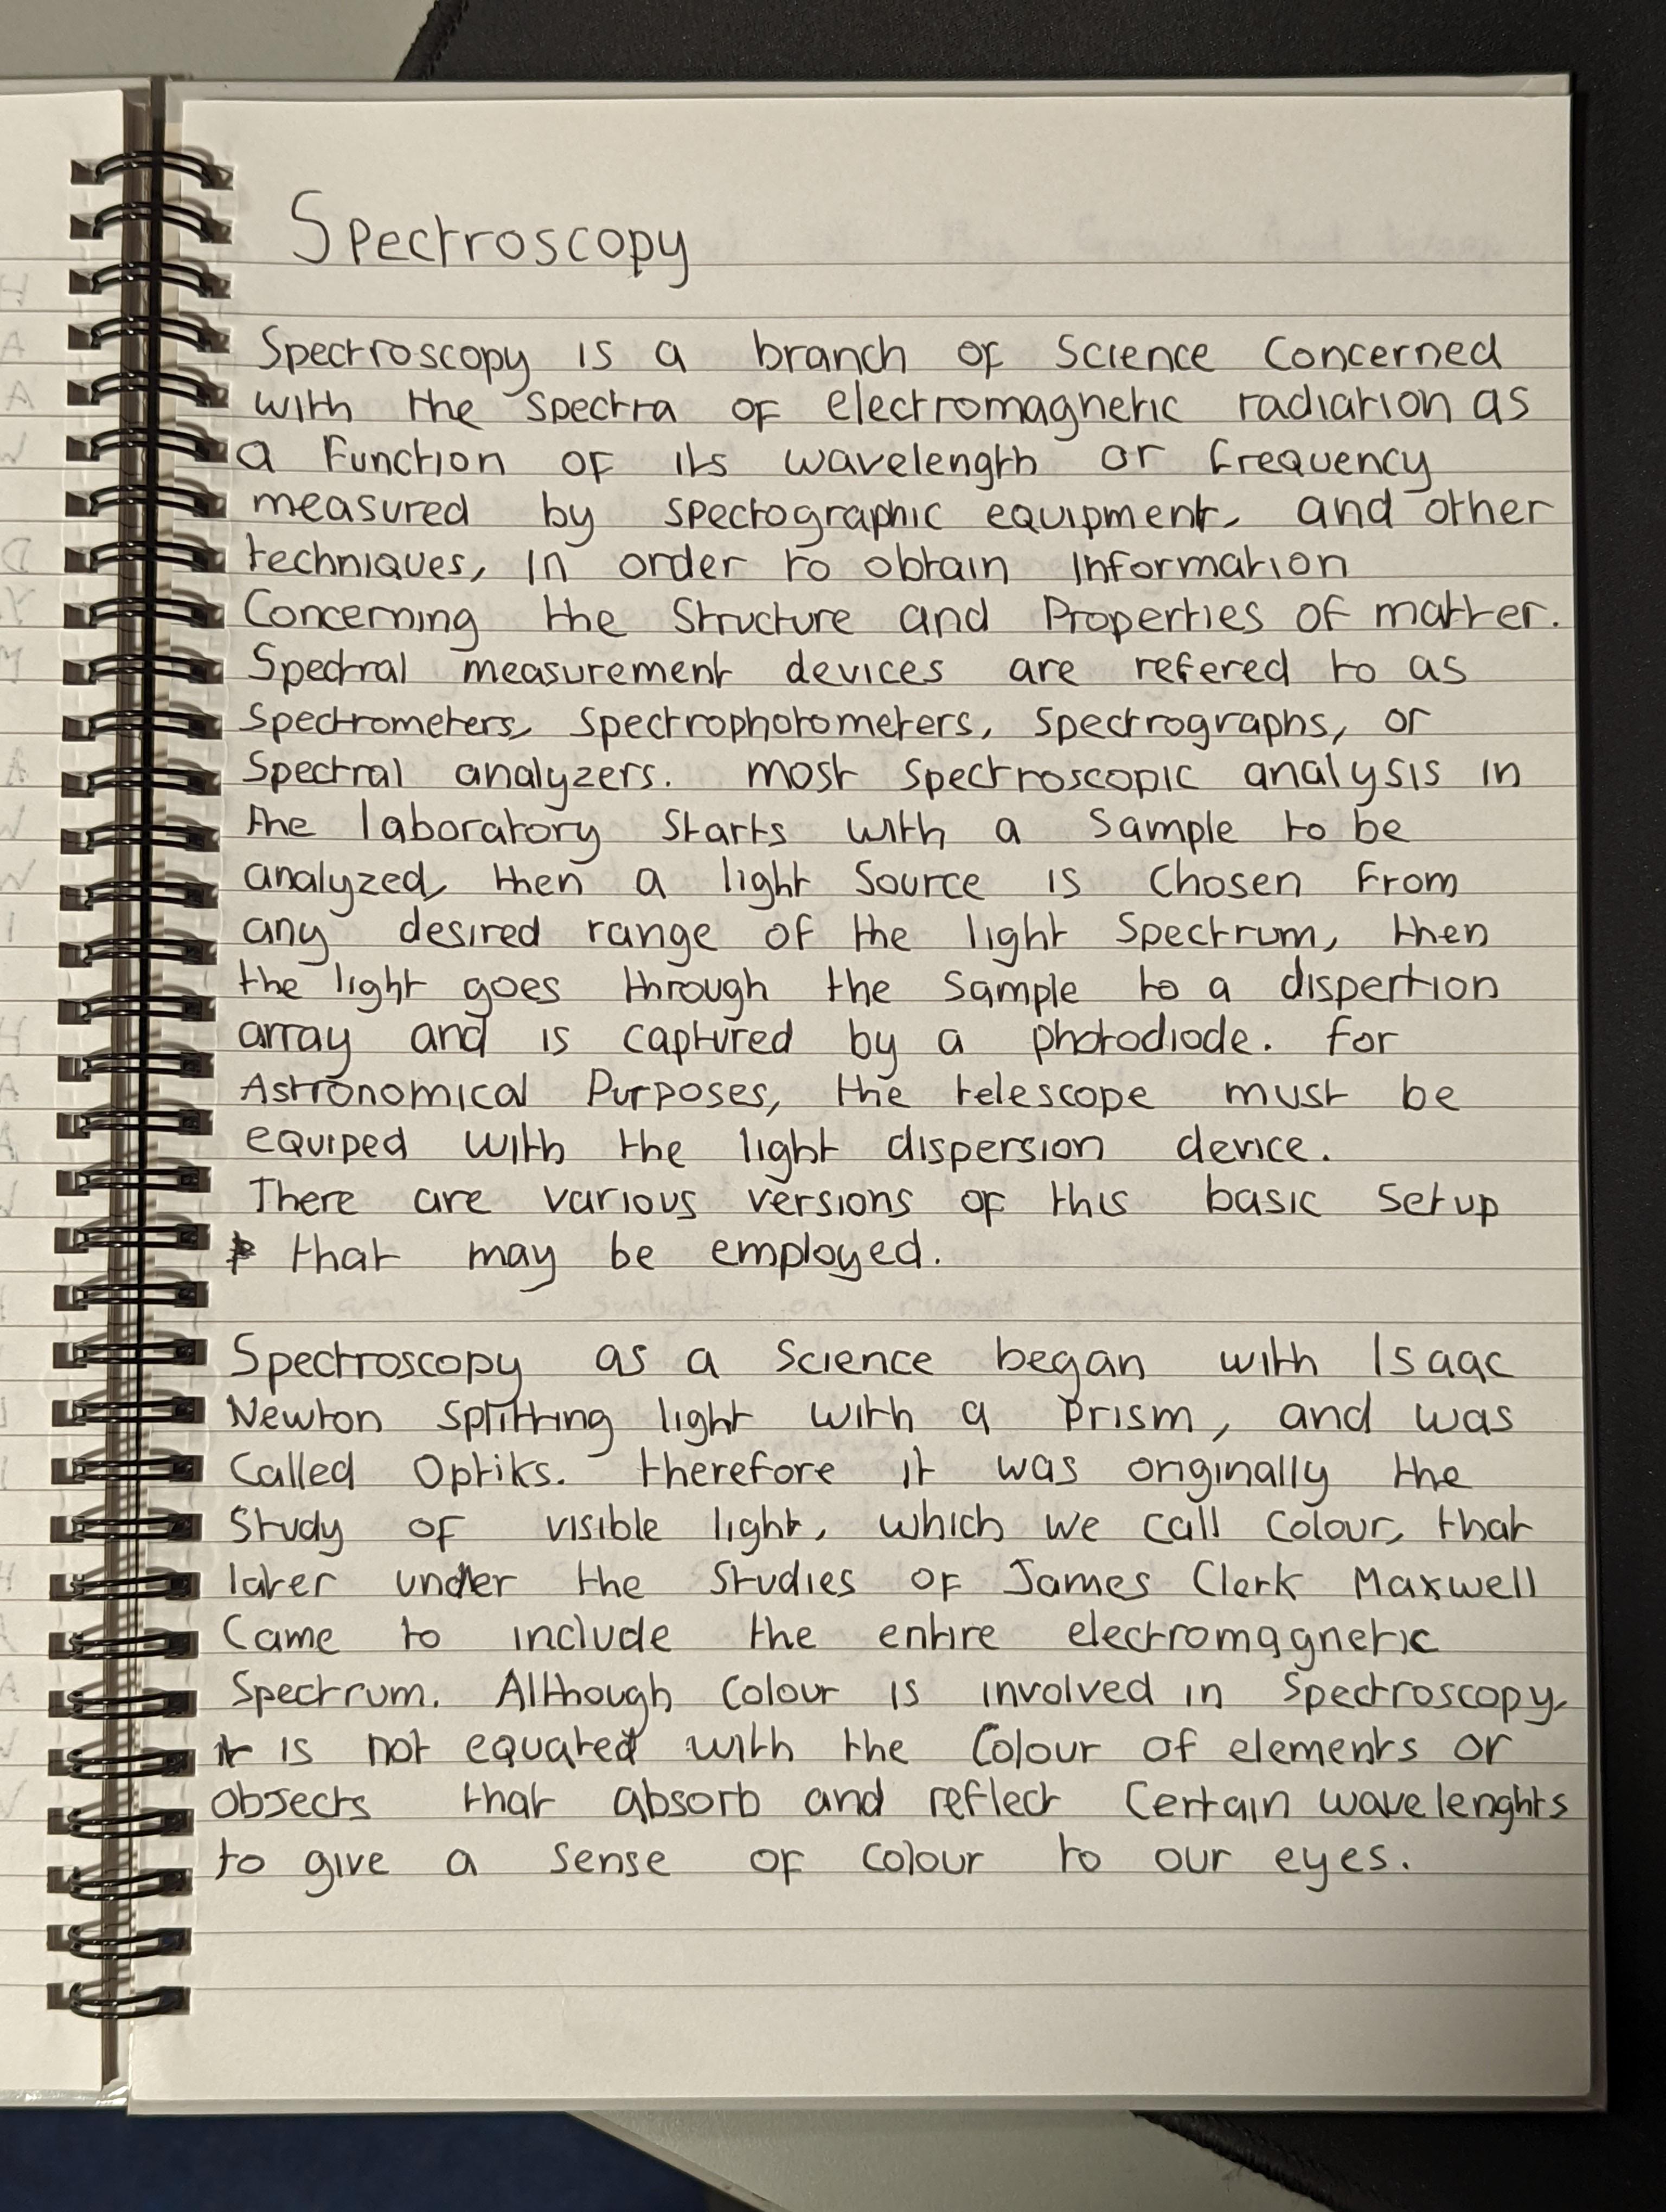 Spectroscopy
Spectroscopy is a branch of Science Concerned
with the spectra of electromagnetic radiation as
a Function of its wavelength or frequency
measured by spectographic equipment, and other
techniques, in order to obtain information
Concerning the Structure and Properties of matter.
Spectral measurement devices are refered to as
Spectrometers, spectrophotometers, spectrographs, or
Spectral analyzers. most spectroscopic analysis in
the laboratory starts with a sample to be
analyzed, then a light Source is Chosen From
any desired range of the light Spectrum, then
the light goes through the sample to a dispertion
array and is captured by a photodiode. for
Astronomical Purposes, the telescope must be
equiped with the light dispersion device.
There are various versions of this basic setup
that may be employed.
Spectroscopy as a Science began with Isaac
Newton splitting light with a Prism, and was
Called Optiks. therefore it was originally the
Study of visible light, which we call Colour, that
later under the Studies of James Clerk Maxwell
Came to include the entire electromagnetic
Spectrum. Although Colour is involved in Spectroscopy,
it is not equated with the Colour of elements or
objects that absorb and reflect Certain wavelenghts
to give a sense of Colour to our eyes.